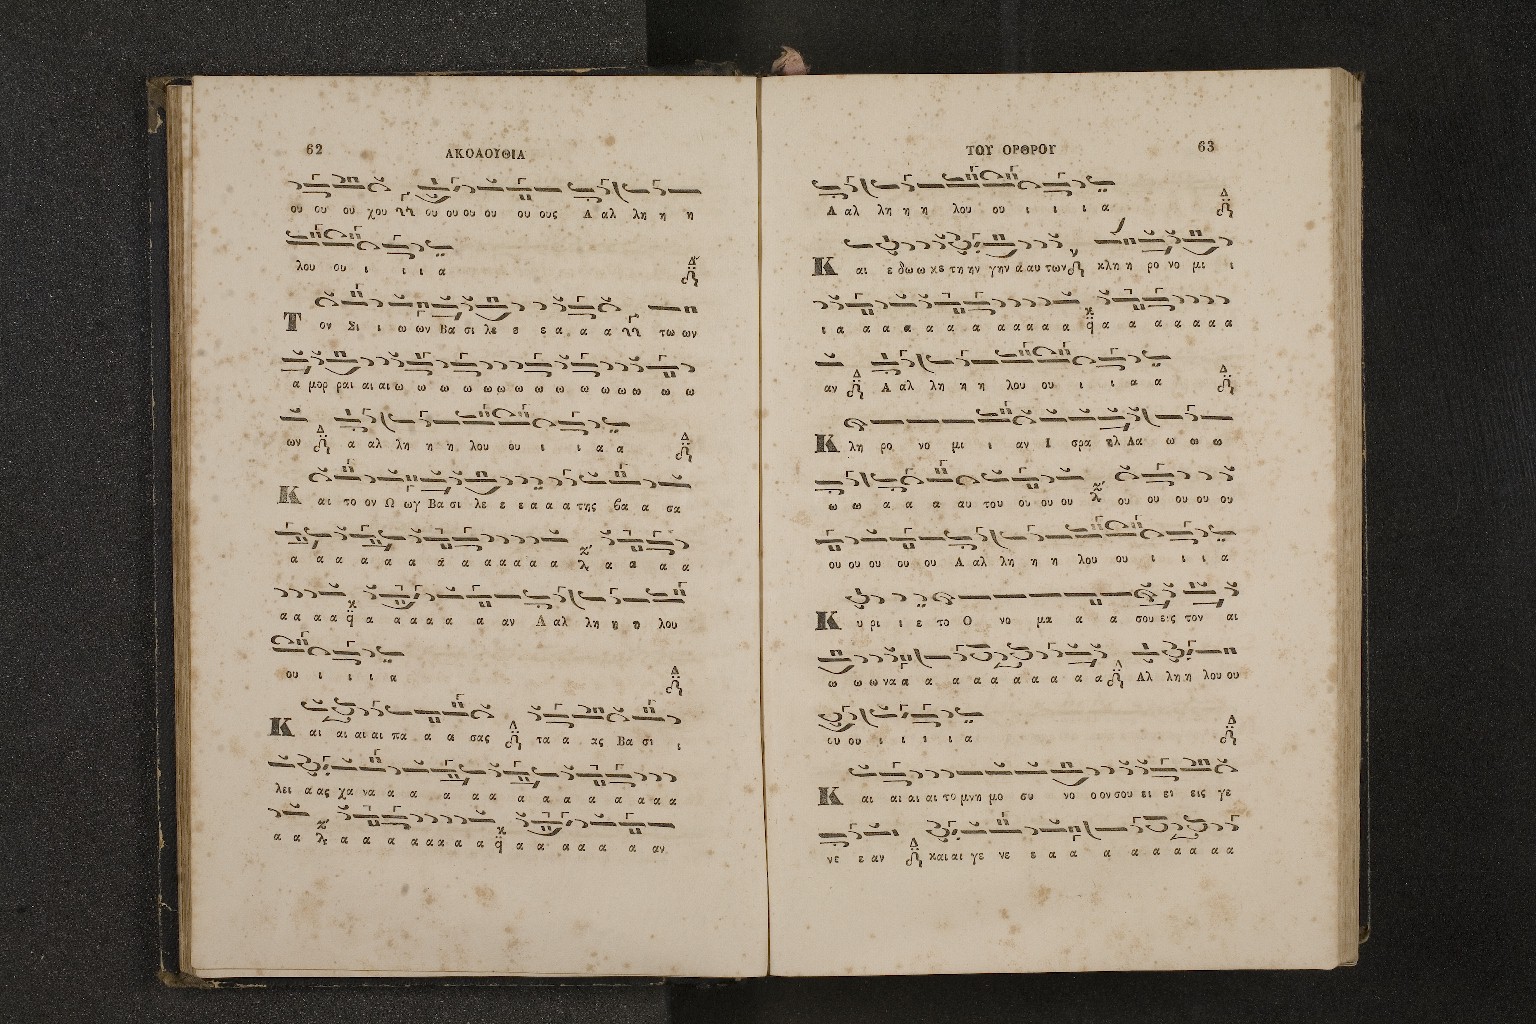 62
ΑΚΟΛΟΥΘΙΑ
ου ου ου χου ου ου ου ου ου ους Α αλ λη η η
λου ου ι ι ι α
Τ ον Σι ι ω ων Βα σι λε ε ε α α α τω ων
α μορ ραι αι αι ω ω ω ω ω ω ω ω ω ω ω ω ω ω
ων α αλ λη η η λου ου ι ι α α
Κ αι το ον Ω ωγ Βα σι λε ε ε α α α της βα α σα
α α α α α α α α α α α α α α α α
α α α α α α α α α α αν Α αλ λη η η λου
ου ι ι ι α
Κ αι αι αι αι πα α α σας τα α ας Βα σι ι
λει α ας χα να α α α α α α α α α α α α
α α α α α α α α α α α α α α α α αν
ΤΟΥ ΟΡΘΡΟΥ
63
Α αλ λη η η λου ου ι ι ι α
Κ αι ε δω ω κε τη ην γην α αυ των κλη η ρο νο μι ι
ι α α α α α α α α α α α α α α α α α α
αν Α αλ λη η η λου ου ι ι α α
Κ λη ρο νο μι ι αν Ι σρα ηλ Δα ω ω ω
ω ω α α α αυ του ου ου ου ου ου ου ου ου
ου ου ου ου ου Α αλ λη η η λου ου ι ι ι α
Κ υ ρι ι ε το Ο νο μα α α σου εις τον αι
ω ω ω να α α α α α α α α α α Αλ λη η λου ου
ου ου ι ι ι ι α
Κ αι αι αι αι το μνη μο συ νο ο ον σου ει ει εις γε
νε ε αν και αι γε νε ε α α α α α α α α α